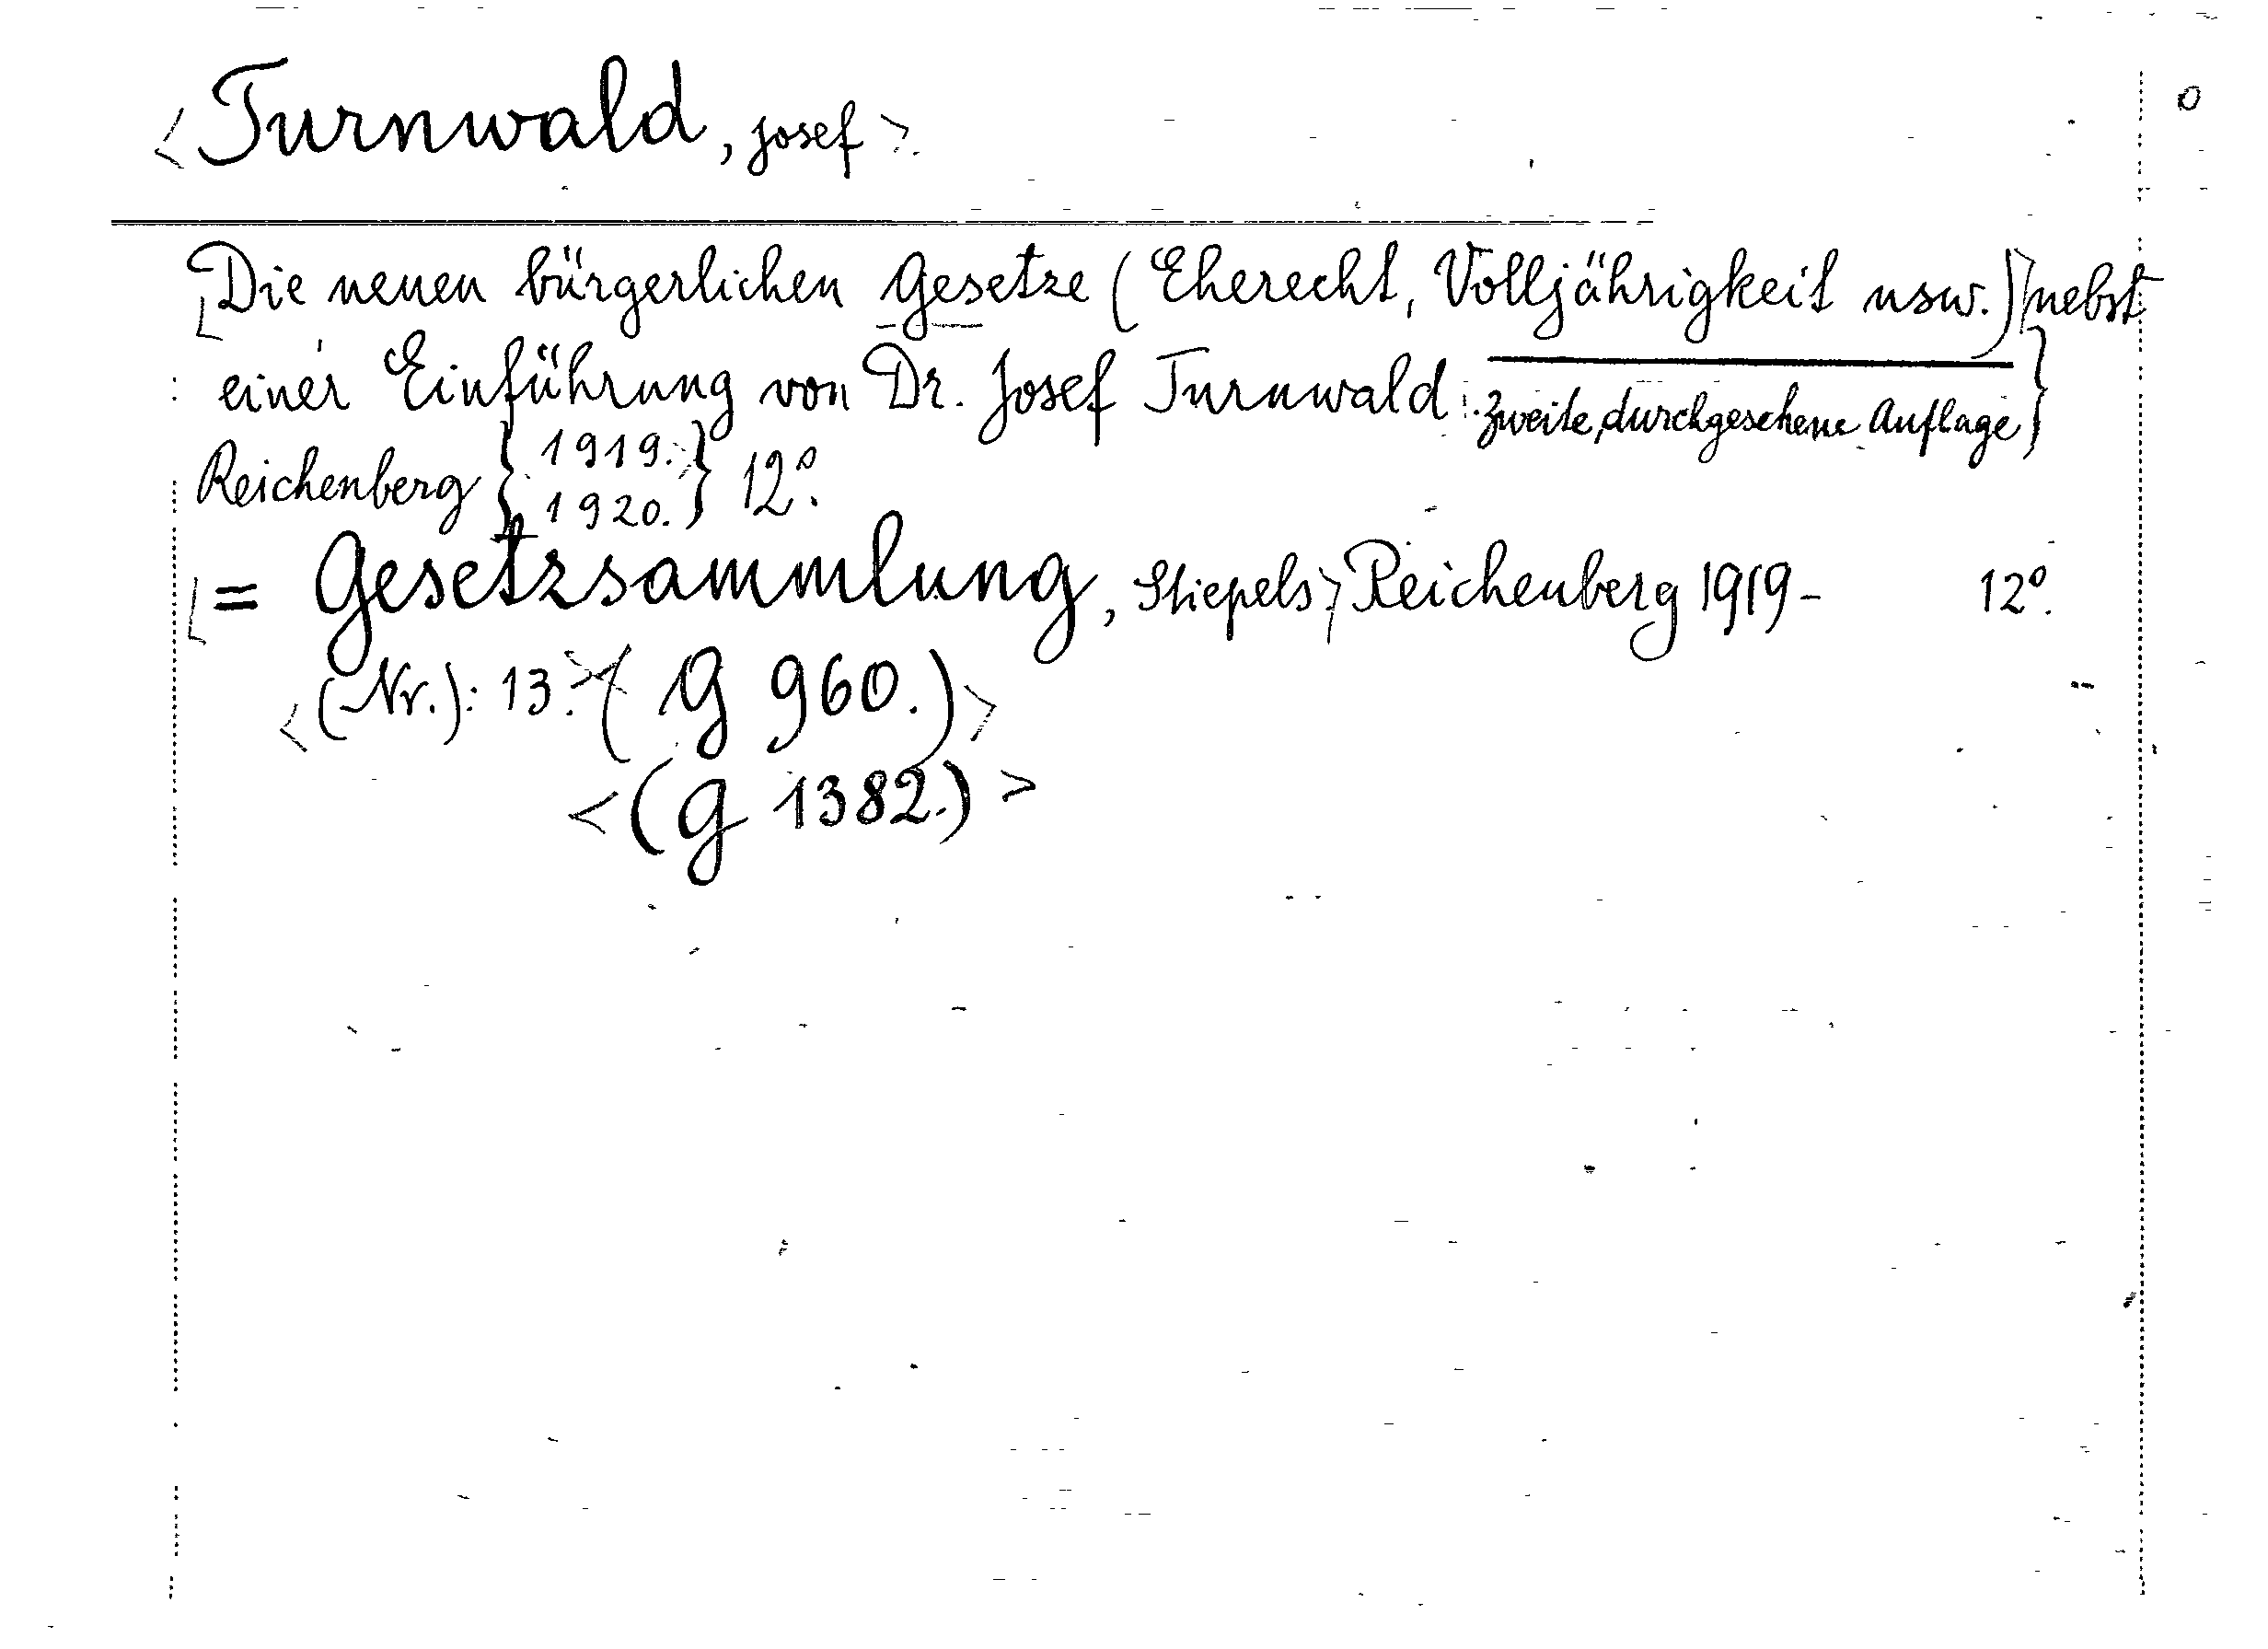 <Turnwald, Josef>
Die neuen bürgerlichen Gesetze (Eherecht, Volljährigkeit usw.) nebst
einer Einführung von Dr. Josef Turnwald. Zweite, durchgesehene Auflage}
Reichenberg {1919.} 12°.
1920.
[= Gesetzsammlung, Stiepels> Reichenberg 1919- 12°.
<(Nr.): 13.> (G 960.)>
<(G 1382.)>